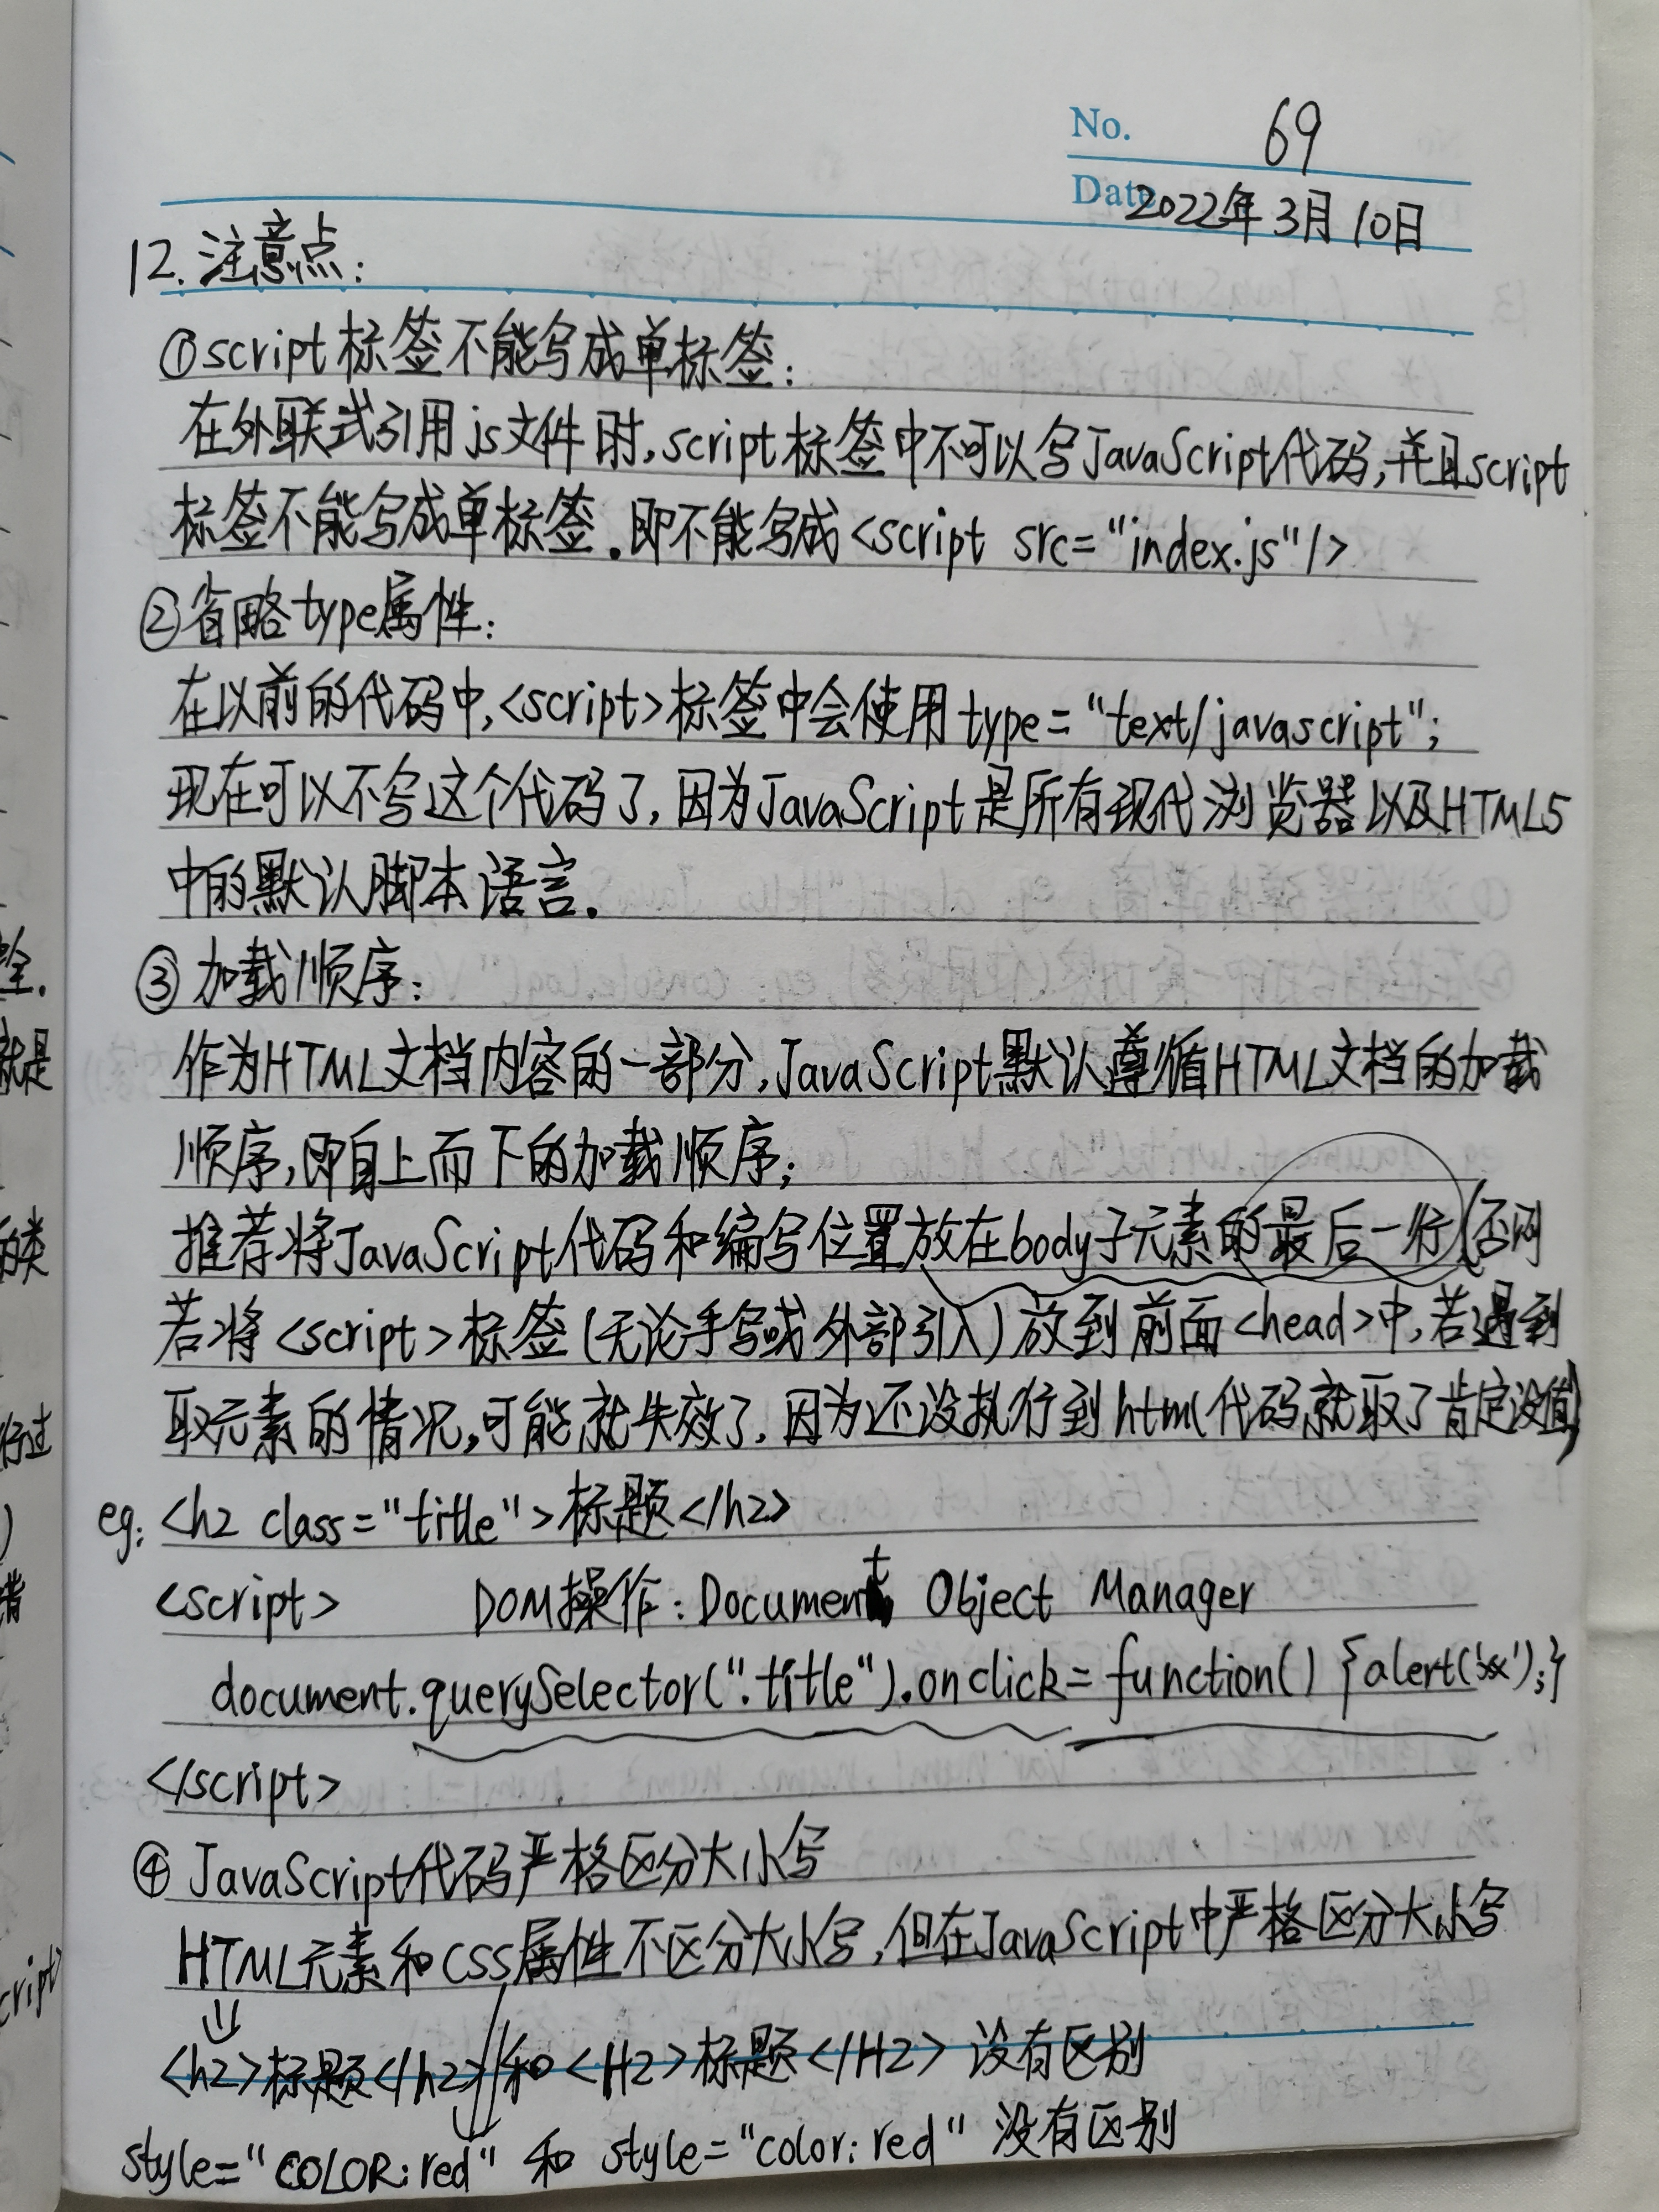 No. 69
Date 2022年3月10日
12. 注意点:
①script标签不能写成单标签:
在外联式引用js文件时,script标签中不可以写JavaScript代码,并且script
标签不能写成单标签.即不能写成<script src="index.js"/>
②省略type属性:
在以前的代码中,<script>标签中会使用type="text/javascript";
现在可以不写这个代码了,因为JavaScript是所有现代浏览器以及HTML5
中的默认脚本语言.
③加载顺序:
作为HTML文档内容的一部分,JavaScript默认遵循HTML文档的加载
顺序,即自上而下的加载顺序;
推荐将JavaScript代码和编写位置放在body子元素的最后一行(否则
若将<script>标签(无论手写或外部引入)放到前面<head>中,若遇到
取元素的情况,可能就失效了,因为还没执行到html代码就取了肯定没值)
eg: <h2 class="title">标题</h2>
<script> DOM操作: Document Object Manager
document.querySelector(".title").onclick=function() {alert('xx');}
</script>
④ JavaScript代码严格区分大小写
HTML元素和CSS属性不区分大小写,但在JavaScript中严格区分大小写
<h2>标题</h2>和<H2>标题</H2> 没有区别
style="COLOR:red" 和 style="color:red" 没有区别
全.
就是
的类
行过
)
cript>